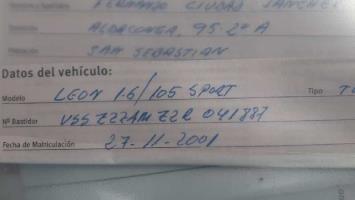 FERNANDO CIUDAD SANCHEZ
ALDACONEA, 95-2º A
SAN SEBASTIAN
Datos del vehículo:
Modelo LEON 1.6/105 SPORT Tipo
Nº Bastidor VSSZZZ1MZ2R041787
Fecha de Matriculación 27-11-2001